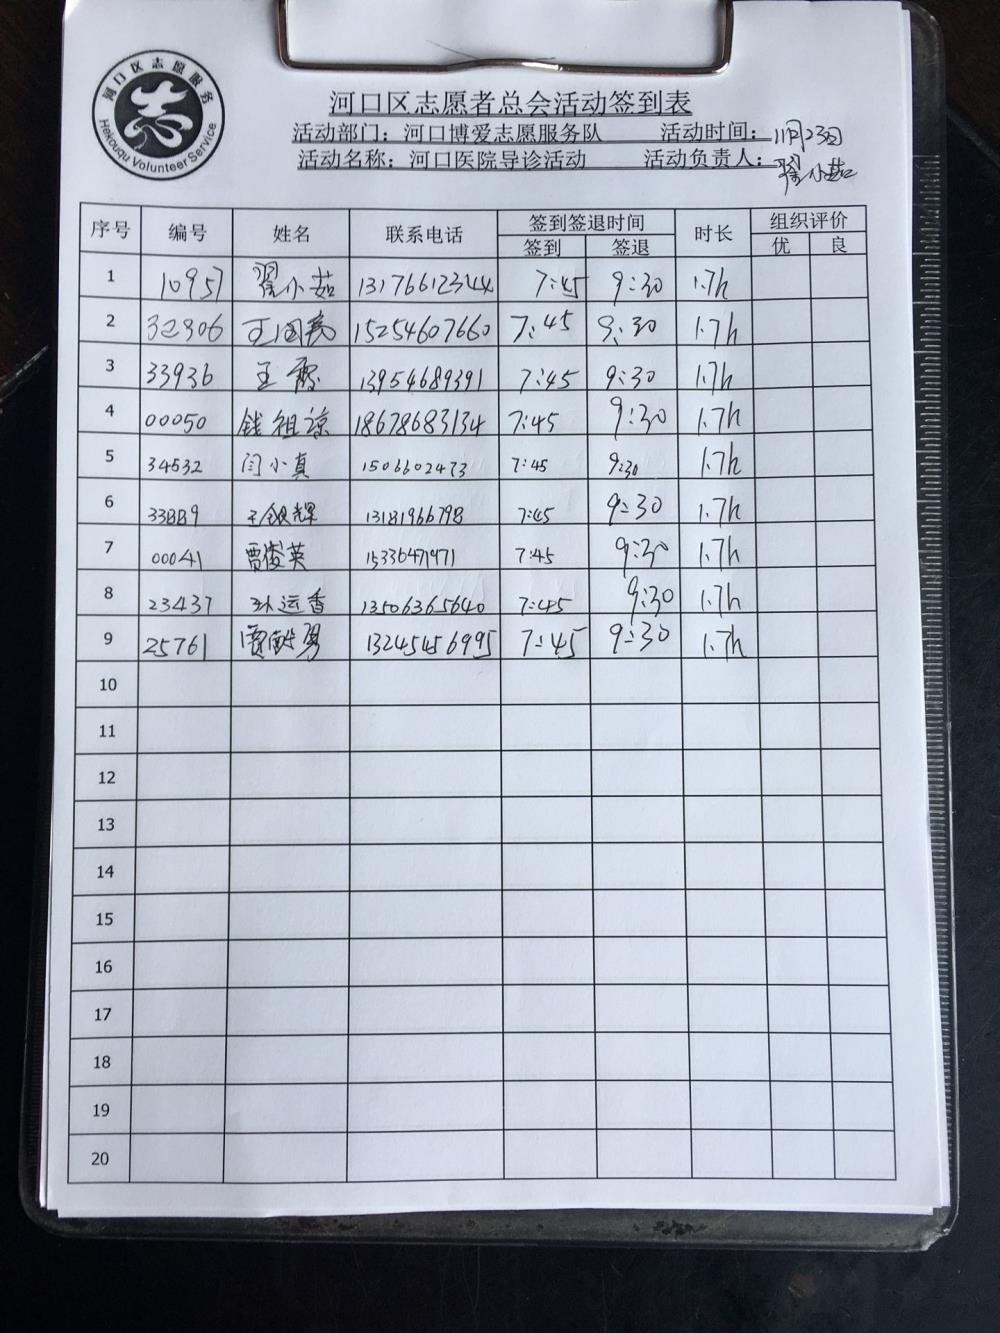 河口区志愿服务
志
Hekouqu Volunteer Service
河口区志愿者总会活动签到表
活动部门：河口博爱志愿服务队 活动时间：11月23日
活动名称：河口医院导诊活动 活动负责人：翟小茹
序号 编号 姓名 联系电话 签到签退时间 时长 组织评价
签到 签退 优 良
1 10957 翟小茹 13176612344 7:45 9:30 1.7h
2 32306 王国亮 15254607660 7:45 9:30 1.7h
3 33936 王霞 13954689391 7:45 9:30 1.7h
4 00050 钱祖谅 18678683134 7:45 9:30 1.7h
5 34532 闫小真 1506602473 7:45 9:30 1.7h
6 33889 王银辉 13181966798 7:45 9:30 1.7h
7 00041 贾俊英 15336471971 7:45 9:30 1.7h
8 23437 孙运香 13506365640 7:45 9:30 1.7h
9 25761 13245456995 7:45 9:30 1.7h
10
11
12
13
14
15
16
17
18
19
20